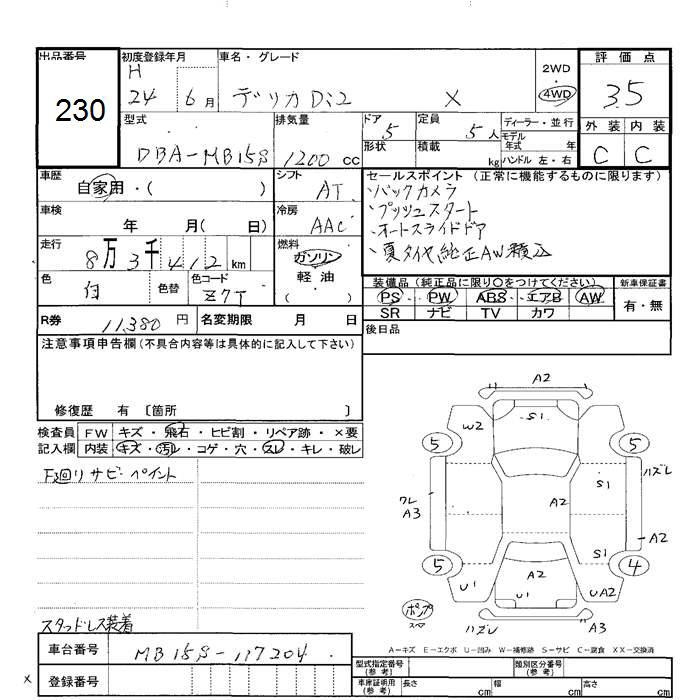 出品番号 初度登録年月 車名・グレード 評価点
230 H 24 6月 デリカD:2 X 2WD 4WD 3.5
外装 内装
C C
型式 排気量 ドア 定員 ディーラー・並行
DBA-MB15S 1200 cc 5 5人 モデル年式 年
形状 積載 kg ハンドル 左・右
車歴 自家用・( ) シフト AT
セールスポイント (正常に機能するものに限ります)
・バックカメラ
・プッシュスタート
・オートスライドドア
・夏タイヤ純正AW積込
車検 年 月( 日) 冷房 AAC
走行 8万3千412km 燃料 ガソリン・軽油
色 白 色替 色コード Z7T
装備品 (純正品に限り○をつけてください) 新車保証書
PS PW ABS エアB AW 有・無
SR ナビ TV カワ
R券 11,380 円 名変期限 月 日
後日品
注意事項申告欄(不具合内容等は具体的に記入して下さい)
修復歴 有 〔箇所 〕
検査員 FW キズ・飛石・ヒビ割・リペア跡・×要
記入欄 内装 キズ・汚レ・コゲ・穴・スレ・キレ・破レ
下廻りサビ・ペイント
A2
W2 S1
5 5
ハズレ
S1
ワレ A3 A2
A2
S1
5 4
U1 A2 UA2
U1
ポンプ スペア
ハズレ A3
A=キズ E=エクボ U=凹み W=補修跡 S=サビ C=腐食 XX=交換済
スタッドレス装着
車台番号 MB15S-117204
x 登録番号
型式指定番号(参考) 類別区分番号(参考)
車庫証明用(参考) 長さ cm 幅 cm 高さ cm